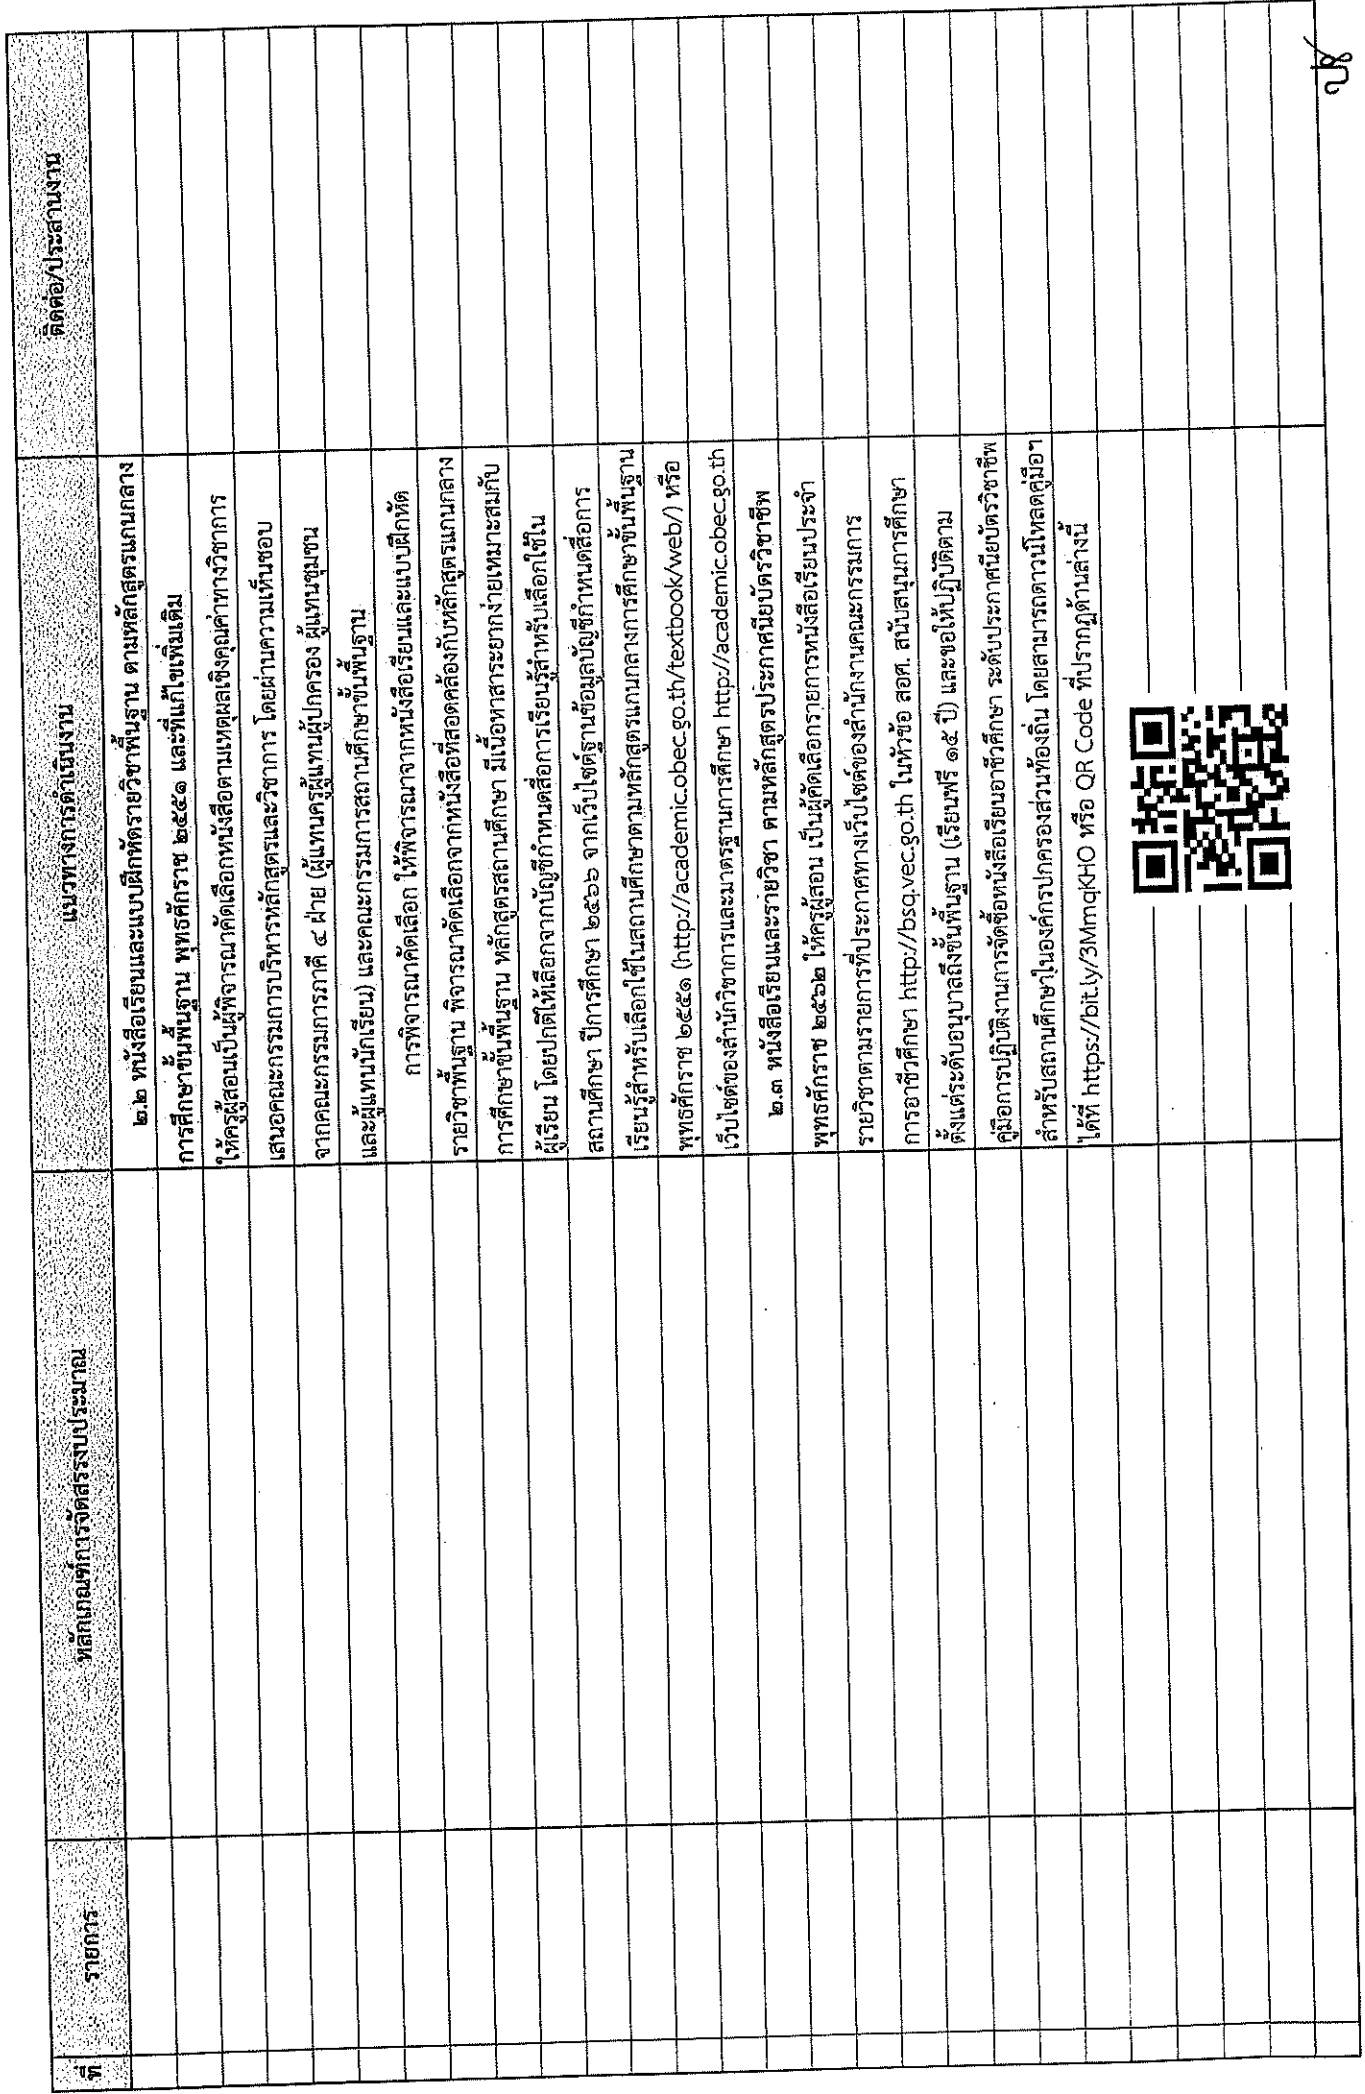 ที่
รายการ
หลักเกณฑ์การจัดสรรงบประมาณ
แนวทางการดำเนินงาน
ติดต่อ/ประสานงาน
๒.๒ หนังสือเรียนและแบบฝึกหัดรายวิชาพื้นฐาน ตามหลักสูตรแกนกลาง
การศึกษาขั้นพื้นฐาน พุทธศักราช ๒๕๕๑ และที่แก้ไขเพิ่มเติม
ให้ครูผู้สอนเป็นผู้พิจารณาคัดเลือกหนังสือตามเหตุผลเชิงคุณค่าทางวิชาการ
เสนอคณะกรรมการบริหารหลักสูตรและวิชาการ โดยผ่านความเห็นชอบ
จากคณะกรรมการภาคี ๔ ฝ่าย (ผู้แทนครูผู้แทนผู้ปกครอง ผู้แทนชุมชน
และผู้แทนนักเรียน) และคณะกรรมการสถานศึกษาขั้นพื้นฐาน
การพิจารณาคัดเลือก ให้พิจารณาจากหนังสือเรียนและแบบฝึกหัด
รายวิชาพื้นฐาน พิจารณาคัดเลือกจากหนังสือที่สอดคล้องกับหลักสูตรแกนกลาง
การศึกษาขั้นพื้นฐาน หลักสูตรสถานศึกษา มีเนื้อหาสาระยากง่ายเหมาะสมกับ
ผู้เรียน โดยปกติให้เลือกจากบัญชีกำหนดสื่อการเรียนรู้สำหรับเลือกใช้ใน
สถานศึกษา ปีการศึกษา ๒๕๖๖ จากเว็บไซต์ฐานข้อมูลบัญชีกำหนดสื่อการ
เรียนรู้สำหรับเลือกใช้ในสถานศึกษาตามหลักสูตรแกนกลางการศึกษาขั้นพื้นฐาน
พุทธศักราช ๒๕๕๑ (http://academic.obec.go.th/textbook/web/) หรือ
เว็บไซต์ของสำนักวิชาการและมาตรฐานการศึกษา http://academic.obec.go.th
๒.๓ หนังสือเรียนและรายวิชา ตามหลักสูตรประกาศนียบัตรวิชาชีพ
พุทธศักราช ๒๕๖๒ ให้ครูผู้สอน เป็นผู้คัดเลือกรายการหนังสือเรียนประจำ
รายวิชาตามรายการที่ประกาศทางเว็บไซต์ของสำนักงานคณะกรรมการ
การอาชีวศึกษา http://bsq.vec.go.th ในหัวข้อ สอศ. สนับสนุนการศึกษา
ตั้งแต่ระดับอนุบาลถึงขั้นพื้นฐาน (เรียนฟรี ๑๕ ปี) และขอให้ปฏิบัติตาม
คู่มือการปฏิบัติงานการจัดซื้อหนังสือเรียนอาชีวศึกษา ระดับประกาศนียบัตรวิชาชีพ
สำหรับสถานศึกษาในองค์กรปกครองส่วนท้องถิ่น โดยสามารถดาวน์โหลดคู่มือฯ
ได้ที่ https://bit.ly/3MmqKHO หรือ QR Code ที่ปรากฏด้านล่างนี้